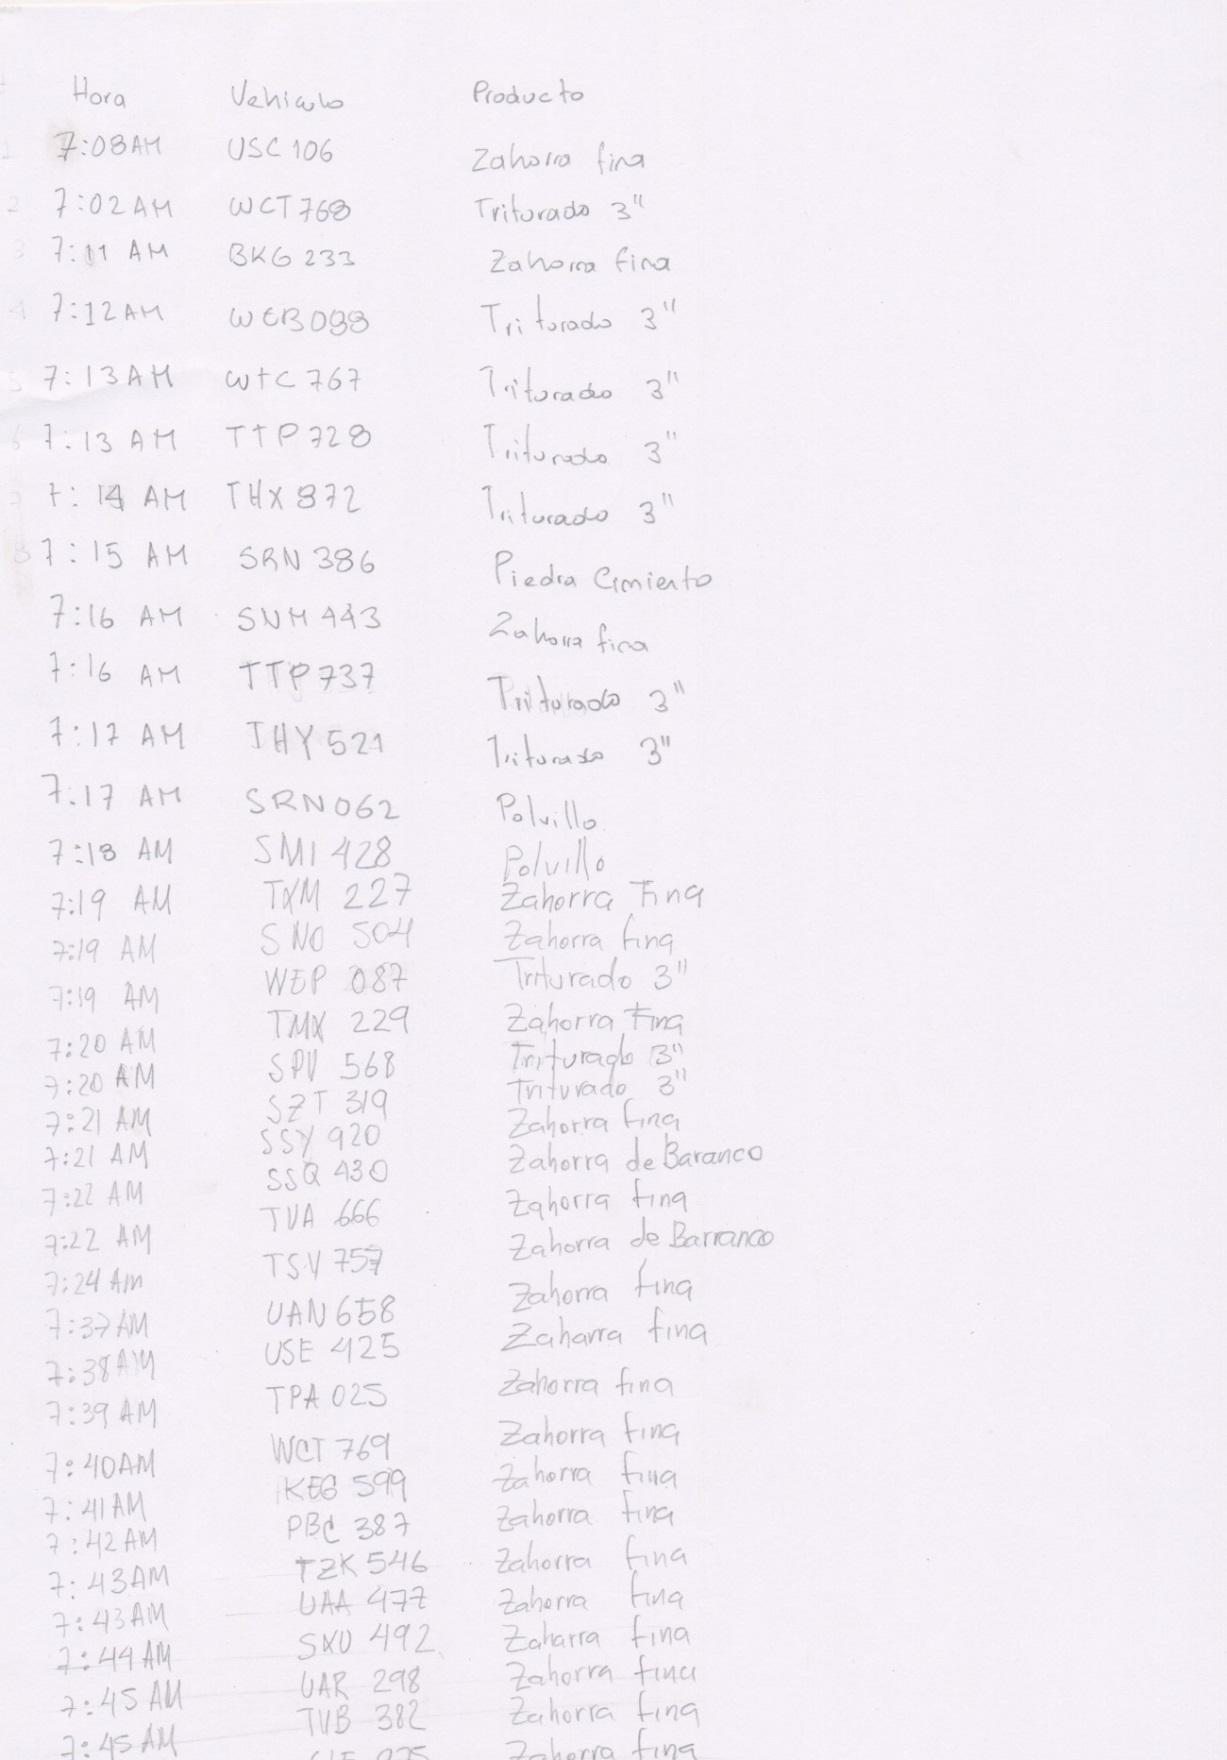 Hora Vehiculo Producto
1 7:08AM USC 106 Zahorra fina
2 7:02 AM WCT 768 Triturado 3"
3 7:11 AM BKG 233 Zahorra fina
4 7:12 AM WEB 098 Triturado 3"
5 7:13 AM WTC 767 Triturado 3"
6 7:13 AM TTP 728 Triturado 3"
7 7:14 AM THX 872 Triturado 3"
8 7:15 AM SRN 386 Piedra Cimiento
7:16 AM SNM 443 Zahorra fina
7:16 AM TTP 737 Triturado 3"
7:17 AM THY 521 Triturado 3"
7:17 AM SRN 062 Polvillo
7:18 AM SMI 428 Polvillo
7:19 AM TXM 227 Zahorra Fina
7:19 AM SNO 504 Zahorra fina
7:19 AM WEP 087 Triturado 3"
7:20 AM TMX 229 Zahorra Fina
7:20 AM SPV 568 Triturado 3"
7:21 AM SZT 319 Triturado 3"
7:21 AM SSY 920 Zahorra fina
7:22 AM SSQ 430 Zahorra de Baranco
7:22 AM TVA 666 Zahorra fina
7:24 Am TSV 757 Zahorra de Barranco
7:37 AM UAN 658 Zahorra fina
7:38 AM USE 425 Zaharra fina
7:39 AM TPA 025 Zahorra fina
7:40AM WCT 769 Zahorra fina
7:41 AM KEG 599 Zahorra fina
7:42 AM PBC 387 Zahorra fina
7:43AM TZK 546 Zahorra fina
7:43 AM UAA 477 Zahorra fina
7:44 AM SXU 492 Zaharra fina
7:45 AM UAR 298 Zahorra fina
7:45 AM TVB 382 Zahorra fina
Zahorra fina